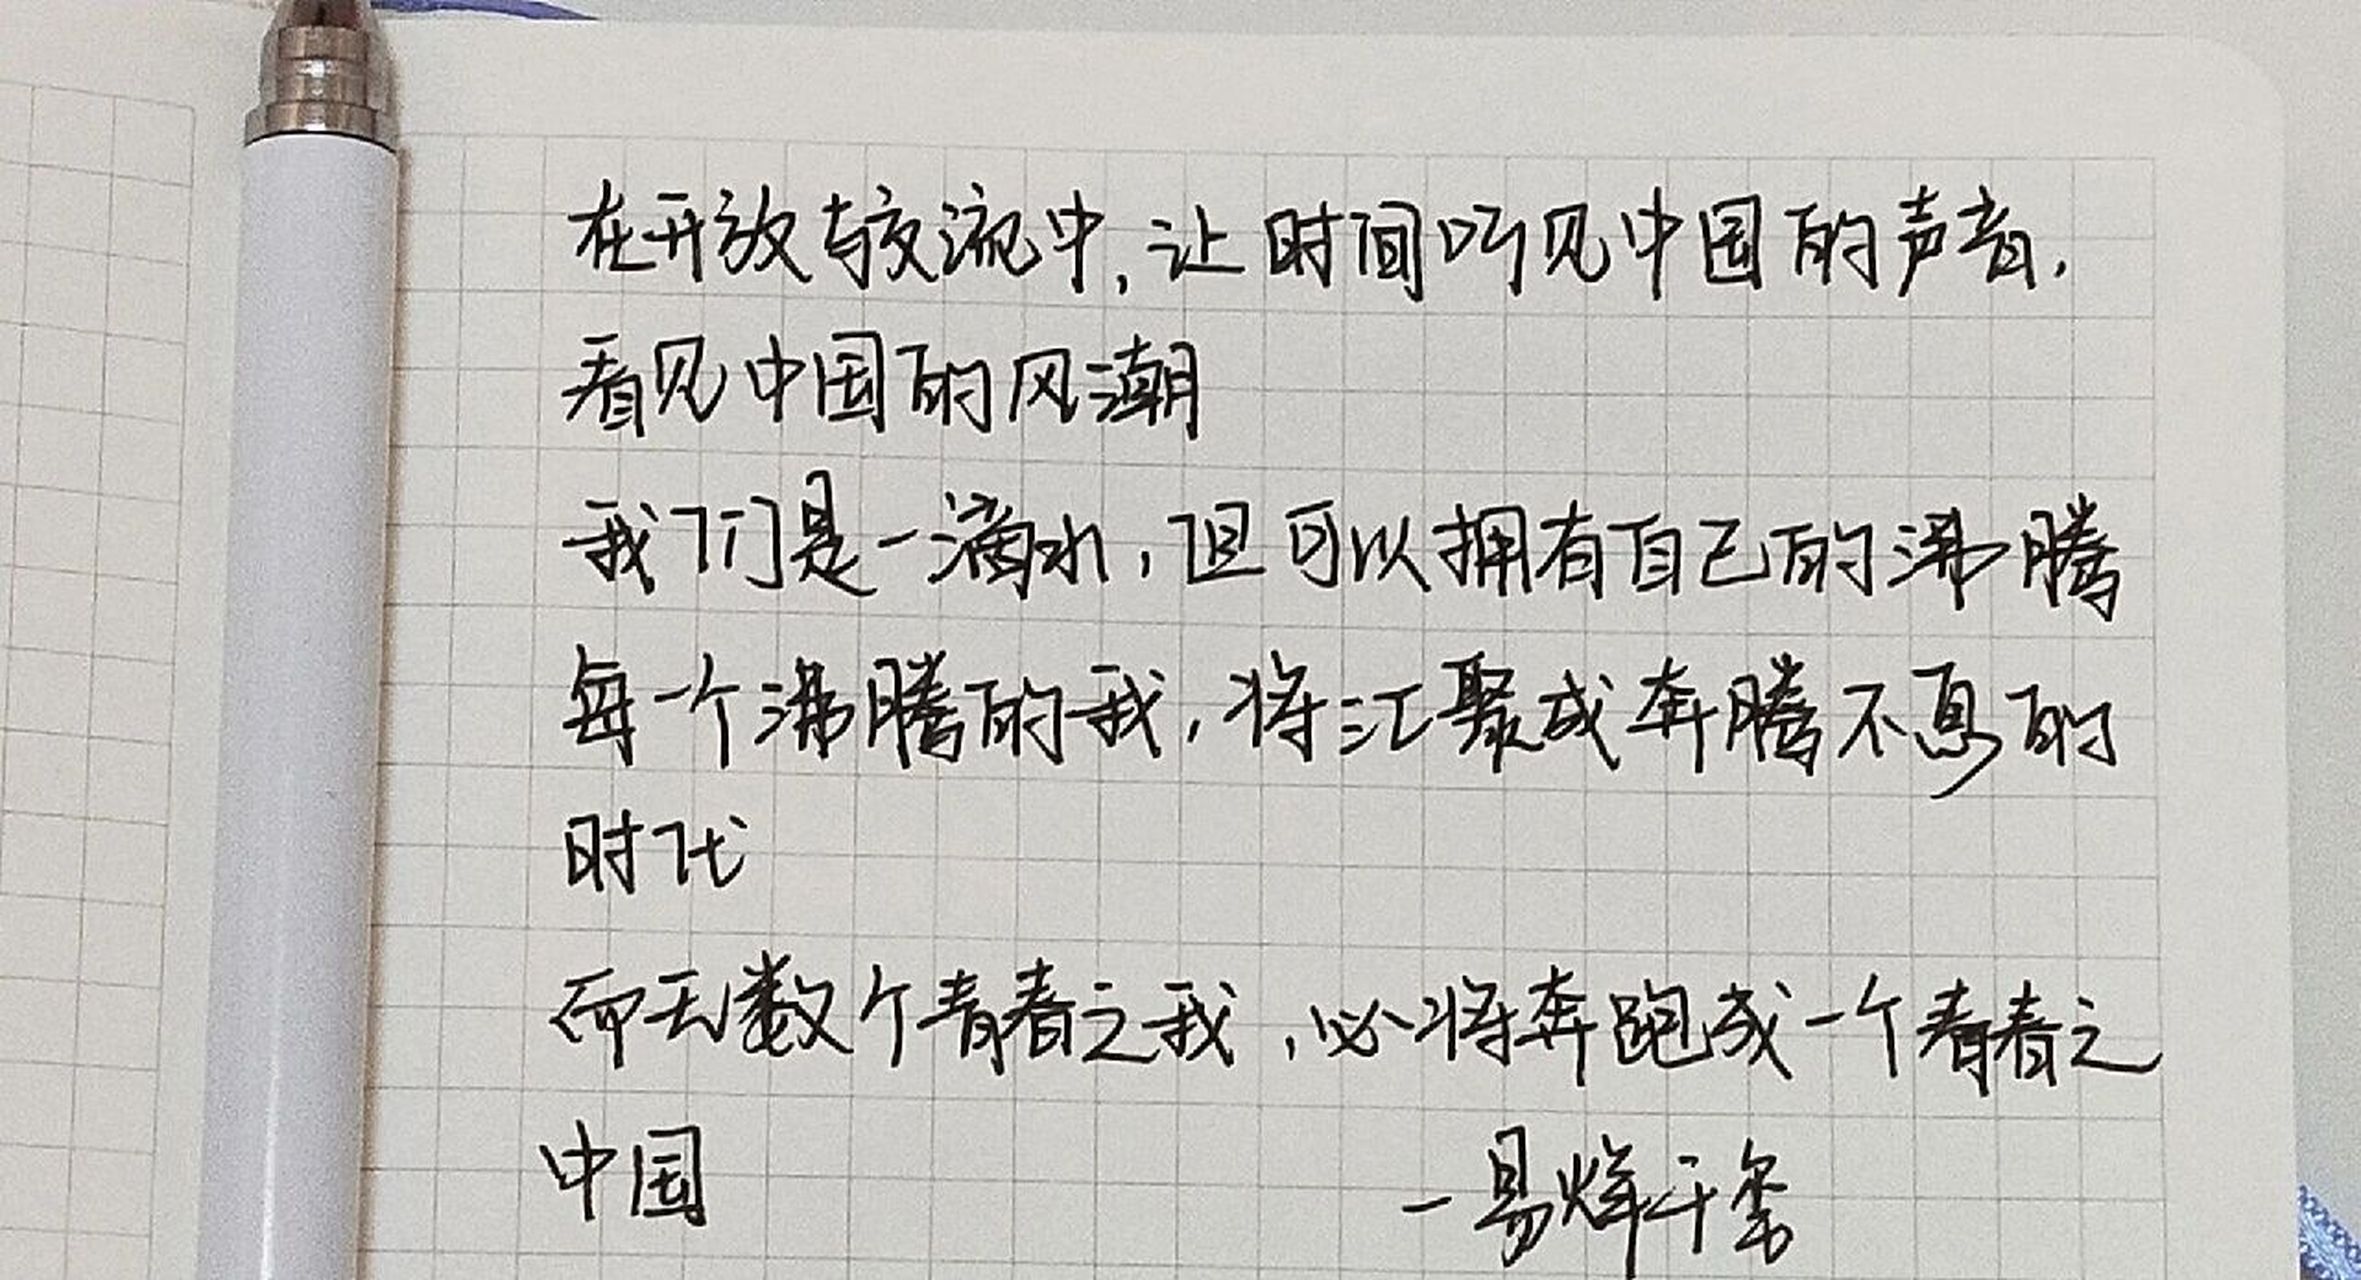 在开放较流中,让时间听见中国的声音,
看见中国的风潮
我们是一滴水,但可以拥有自己的沸腾
每一个沸腾的我,将汇聚成奔腾不息的
时代
而无数个青春之我,必将奔跑成一个青春之
中国
一易烊千玺